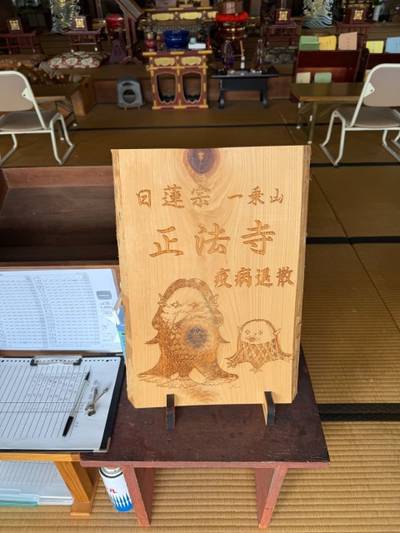 日蓮宗 一乗山
正法寺
疫病退散